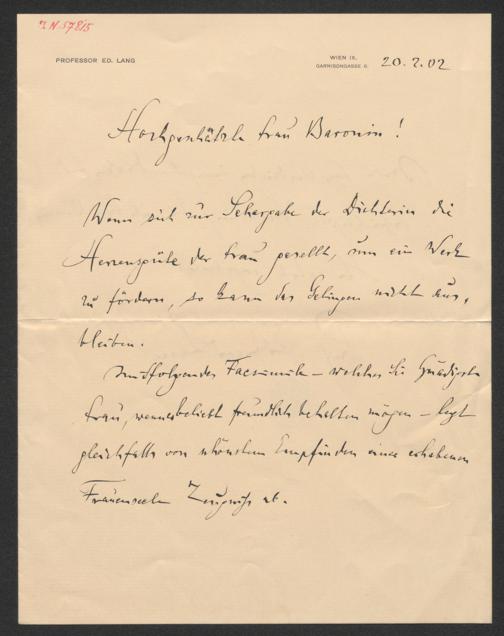 I.N. 57815
PROFESSOR ED. LANG
WIEN IX,
GARNISONGASSE 6.
20.2.02
Hochgeschätzte Frau Baronin!
Wenn sich zur Sehergabe der Dichterin die
Herzensgüte der Frau gesellt, um ein Werk
zu fördern, so kann das Gelingen nicht aus-
bleiben.
Mitfolgendes Facsimile – welches Sie Gnädigste
Frau, wenns beliebt freundlich behalten mögen – legt
gleichfalls von schönstem Empfinden einer erhabenen
Frauenseele Zeugniss ab.